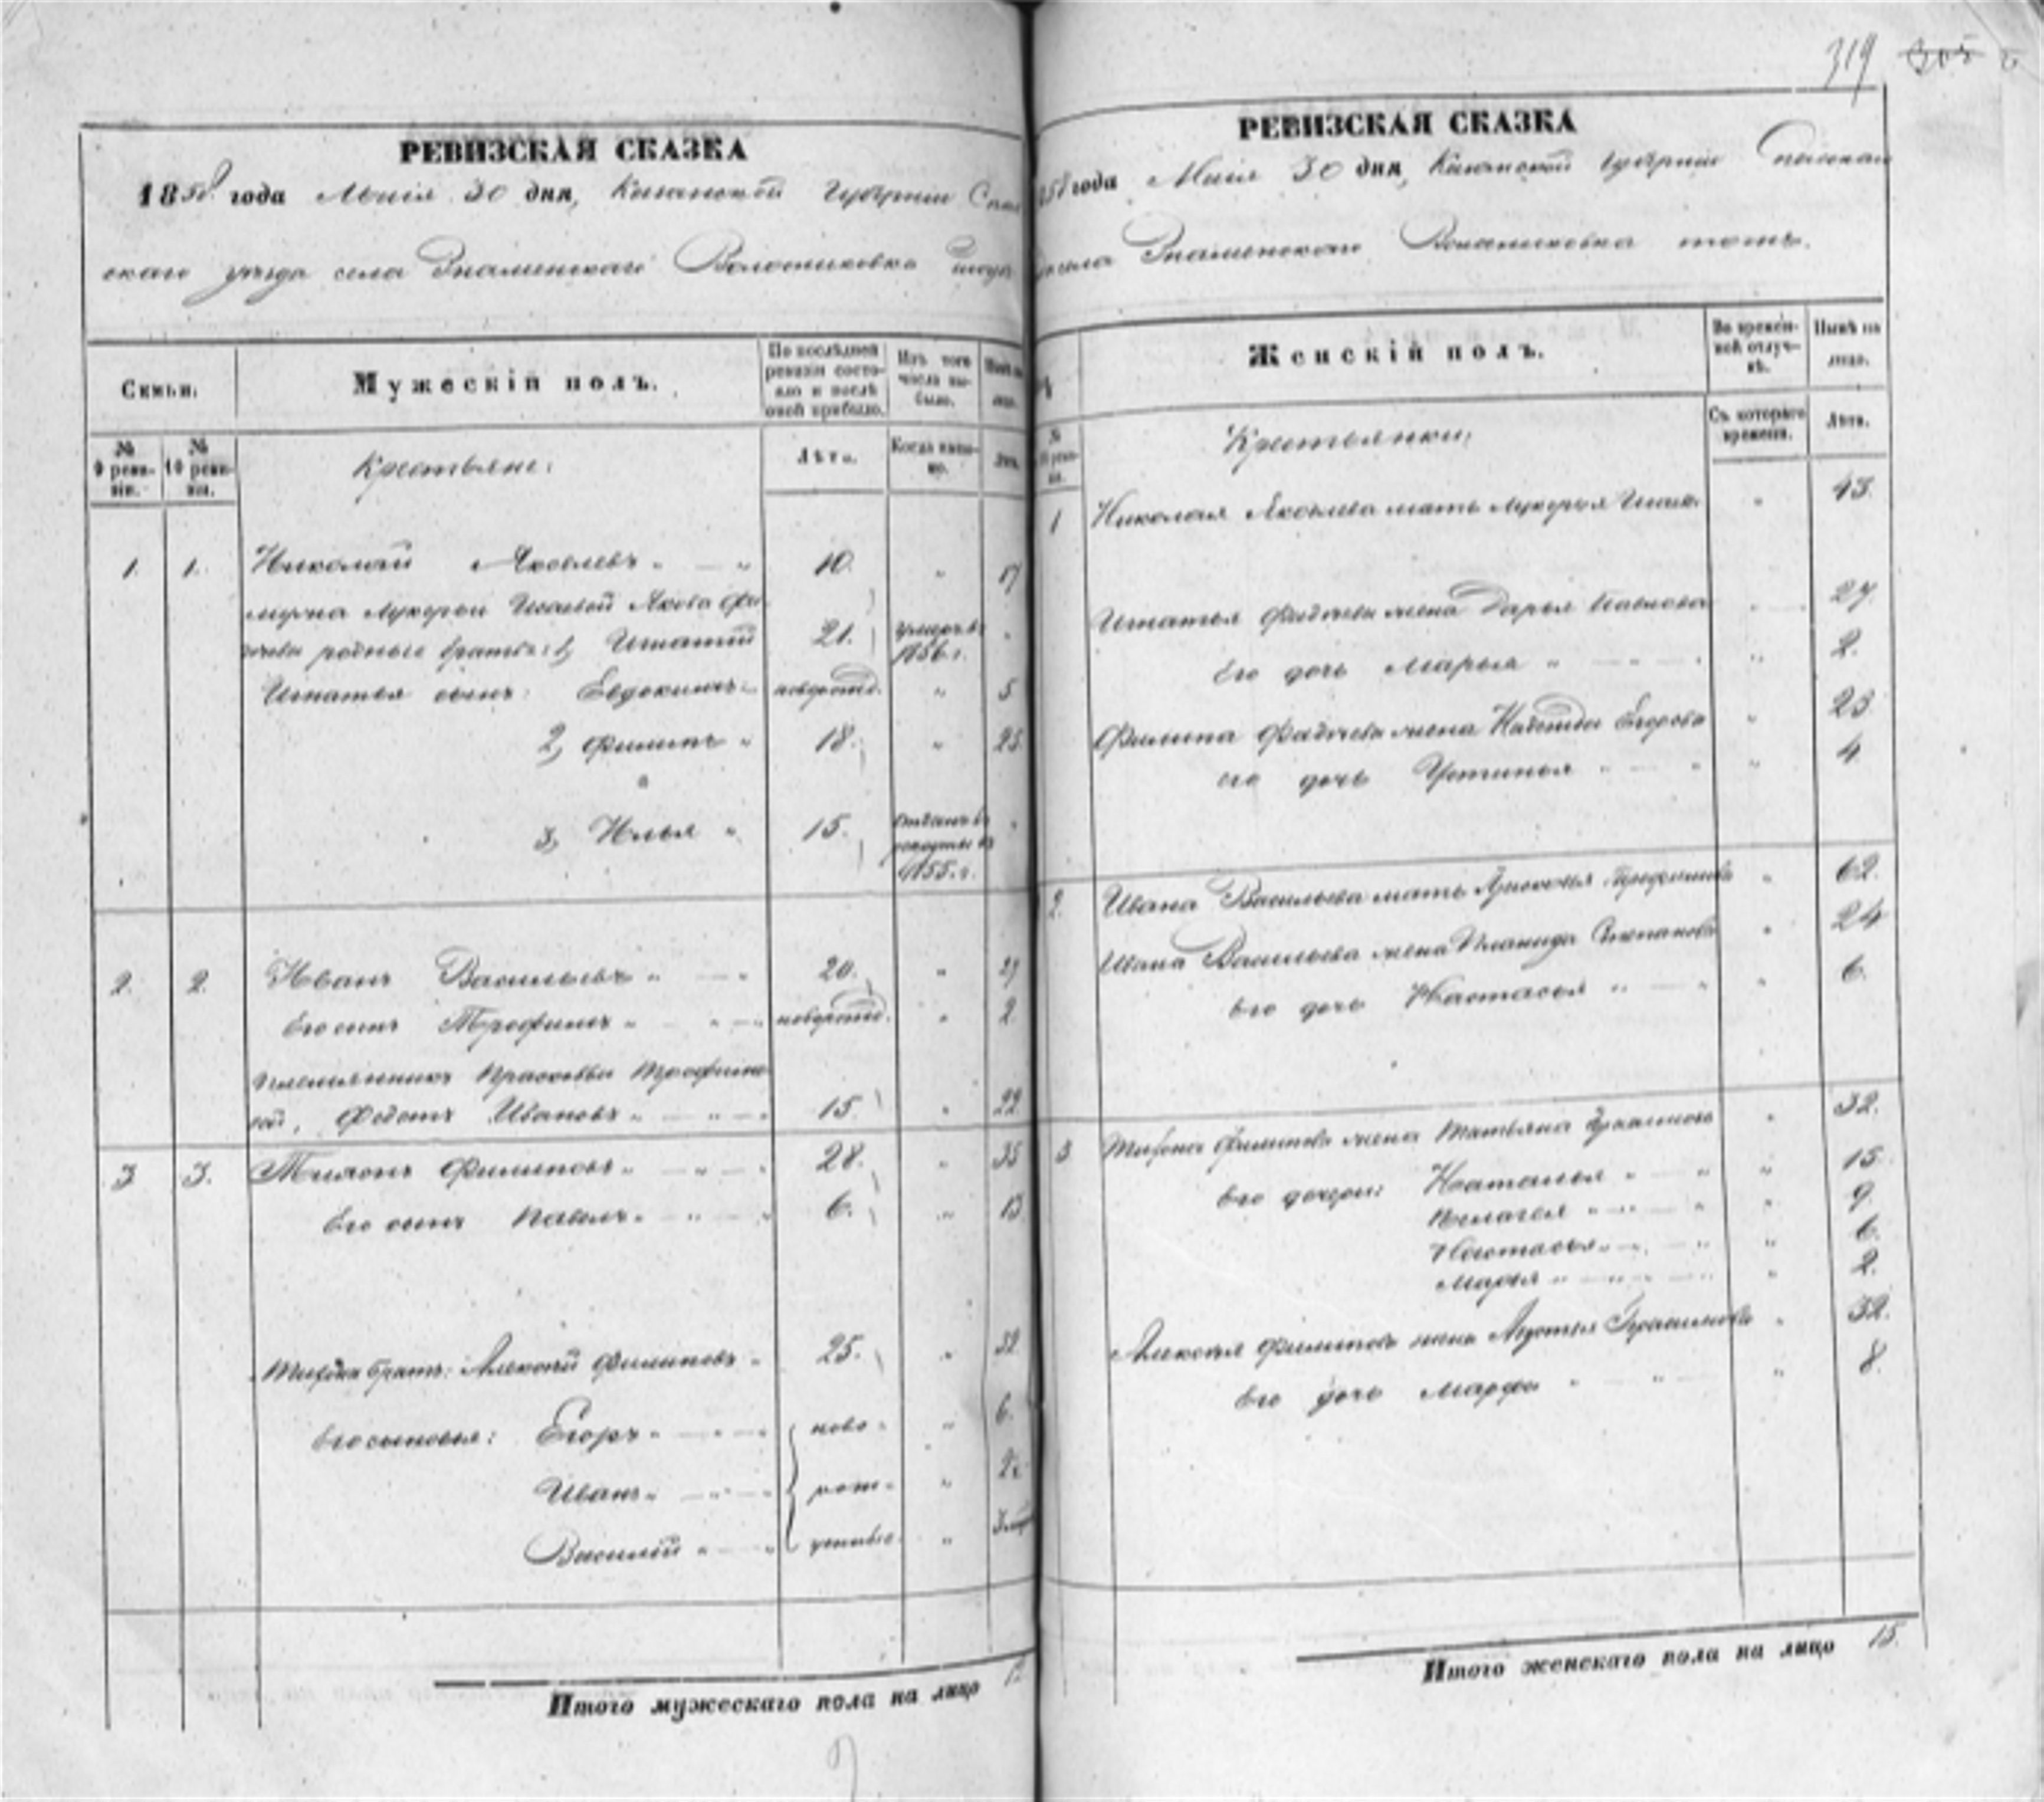 319 305
РЕВИЗСКАЯ СКАЗКА
1858 года Маія 30 дня, Казанской Губерніи Спас
скаго уѣзда села Знаменскаго
Семьи.
Мужескій полъ.
По послѣдней ревизіи состояло и послѣ оной прибыло.
Изъ того числа выбыло.
Нынѣ на лицо.
№ 9 ревизіи.
№ 10 ревизіи.
Крестьяне:
Лѣта.
Когда именно.
Лѣта.
1. 1. Николай Яковлевъ 10. 17
мужа Лукерьи Исаевой Якова Фа
дѣева родные братья: 1, Игнатій 21. умеръ въ 1856 г.
Игнатья сынъ: Евдокимъ новорожд. 5
2, Филипъ 18. 25
3, Илья 15. отданъ въ рекруты въ 1855 г.
2. 2. Иванъ Васильевъ 20. 27
Его сынъ Трофимъ новорожд. 2
племянникъ Прасковьи Трофимо
вой, Федотъ Ивановъ 15 22
3 3. Филиповъ 28. 35
Его сынъ Павелъ 6. 13
братъ: Алексѣй Филиповъ 25. 32
Его сыновья: Егоръ ново 6.
Иванъ рож 2
Василій денные
Итого мужескаго пола на лицо
РЕВИЗСКАЯ СКАЗКА
1858 года Маія 30 дня, Казанской Губерніи Спасскаго
села Знаменскаго тожъ.
№ 10 ревизіи.
Женскій полъ.
Во временной отлучкѣ.
Нынѣ на лицо.
Съ котораго времени.
Лѣта.
Крестьянки:
1 Николая Яковлева мать Лукерья Исаева 43.
Игнатья Фадѣева жена Дарья Иванова 27.
Его дочь Марья 2.
Филипа Фадѣева жена Надежда Егорова 23
его дочь Устинья 4
2. Ивана Васильева мать Прасковья Трофимова 62.
Ивана Васильева жена Степанова 24
Его дочь Настасья 6.
3 Филипова жена Татьяна 32.
Его дочери: Наталья 15
Пелагея 9
Настасья 6.
Марья 2.
Алексѣя Филипова жена Герасимова 32.
Его дочь Марфа 8.
Итого женскаго пола на лицо 15.